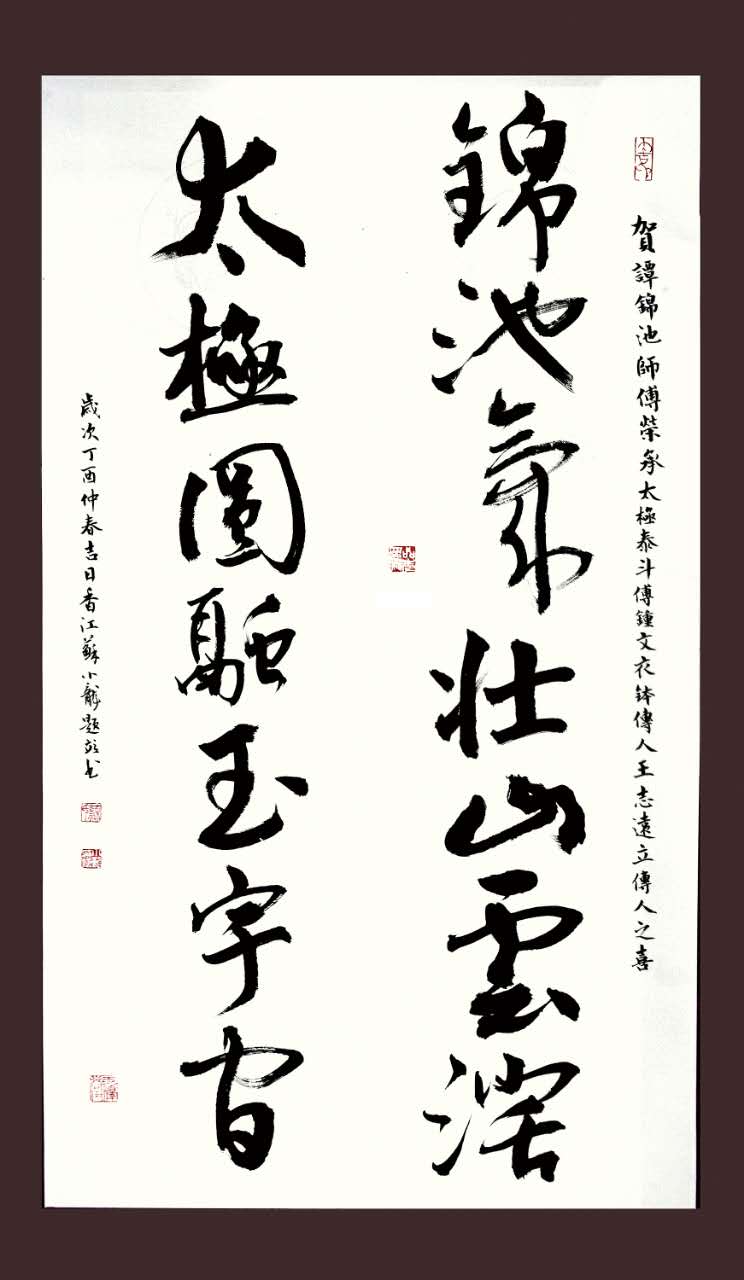 賀譚錦池師傅榮承太極泰斗傅鍾文衣鉢傳人王志遠立傳人之喜
錦池氣壯山雲濶
太極圖融玉宇間
歲次丁酉仲春吉日香江蘇小龍題並書